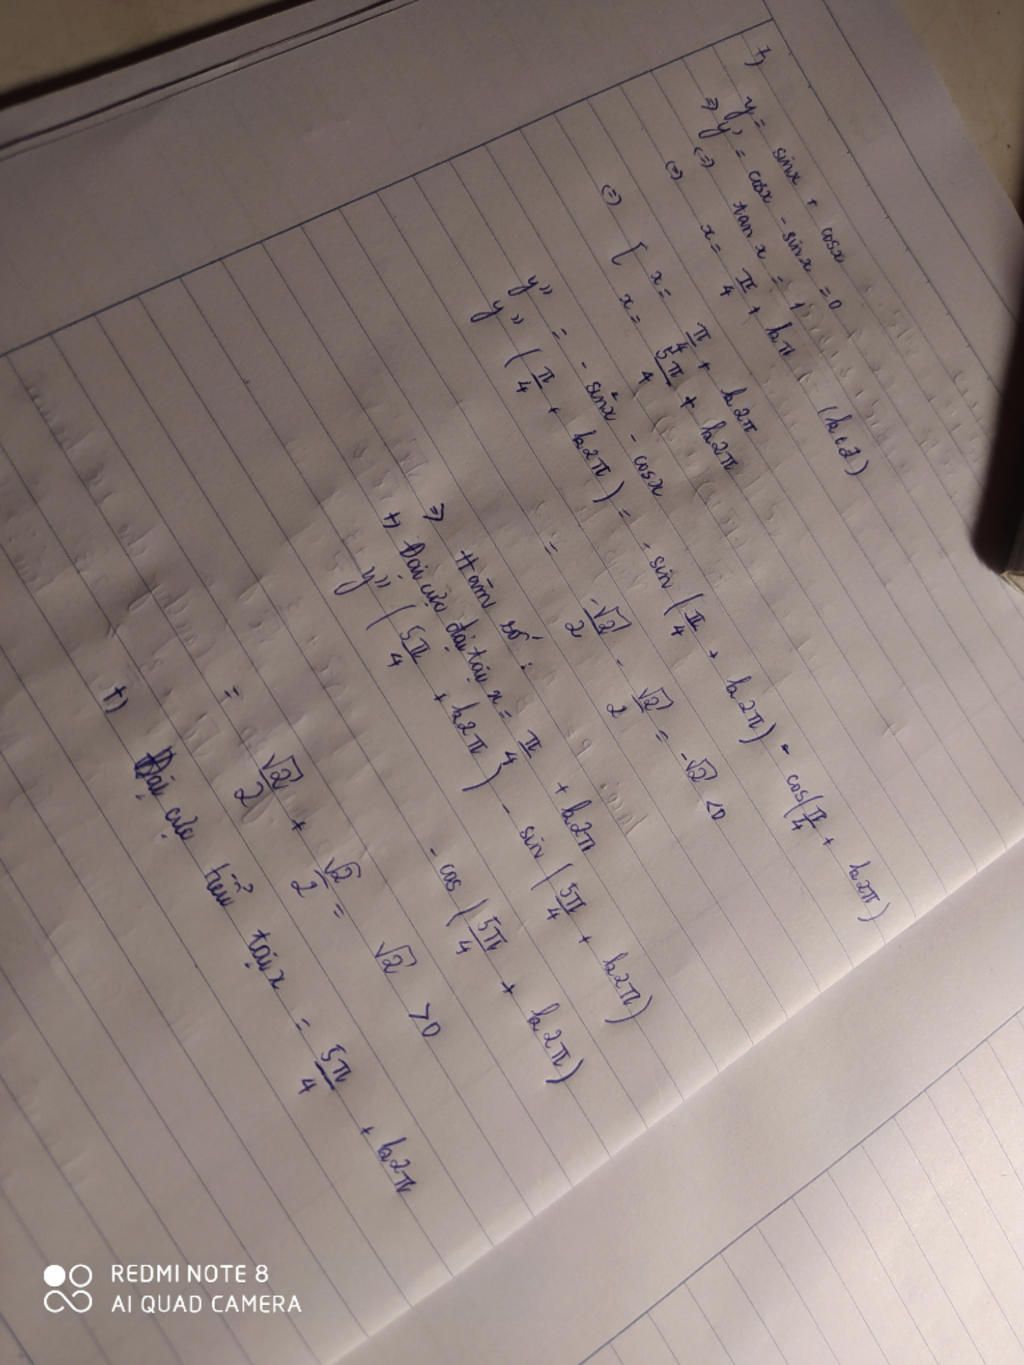 b)
y = sinx + cosx
=> y' = cosx - sinx = 0
(=) tan x = 1
(=) x = π/4 + kπ (k∈Z)
(=) [ x = π/4 + k2π
x = 5π/4 + k2π
y'' = - sinx - cosx
y'' (π/4 + k2π) = - sin (π/4 + k2π) - cos(π/4 + k2π)
= -√2/2 - √2/2 = -√2 <0
=> Hàm số :
+) Đại cực đại tại x = π/4 + k2π
y'' (5π/4 + k2π) - sin (5π/4 + k2π)
- cos (5π/4 + k2π)
= √2/2 + √2/2 = √2 >0
+) Đại cực tiểu tại x = 5π/4 + k2π
REDMI NOTE 8
AI QUAD CAMERA